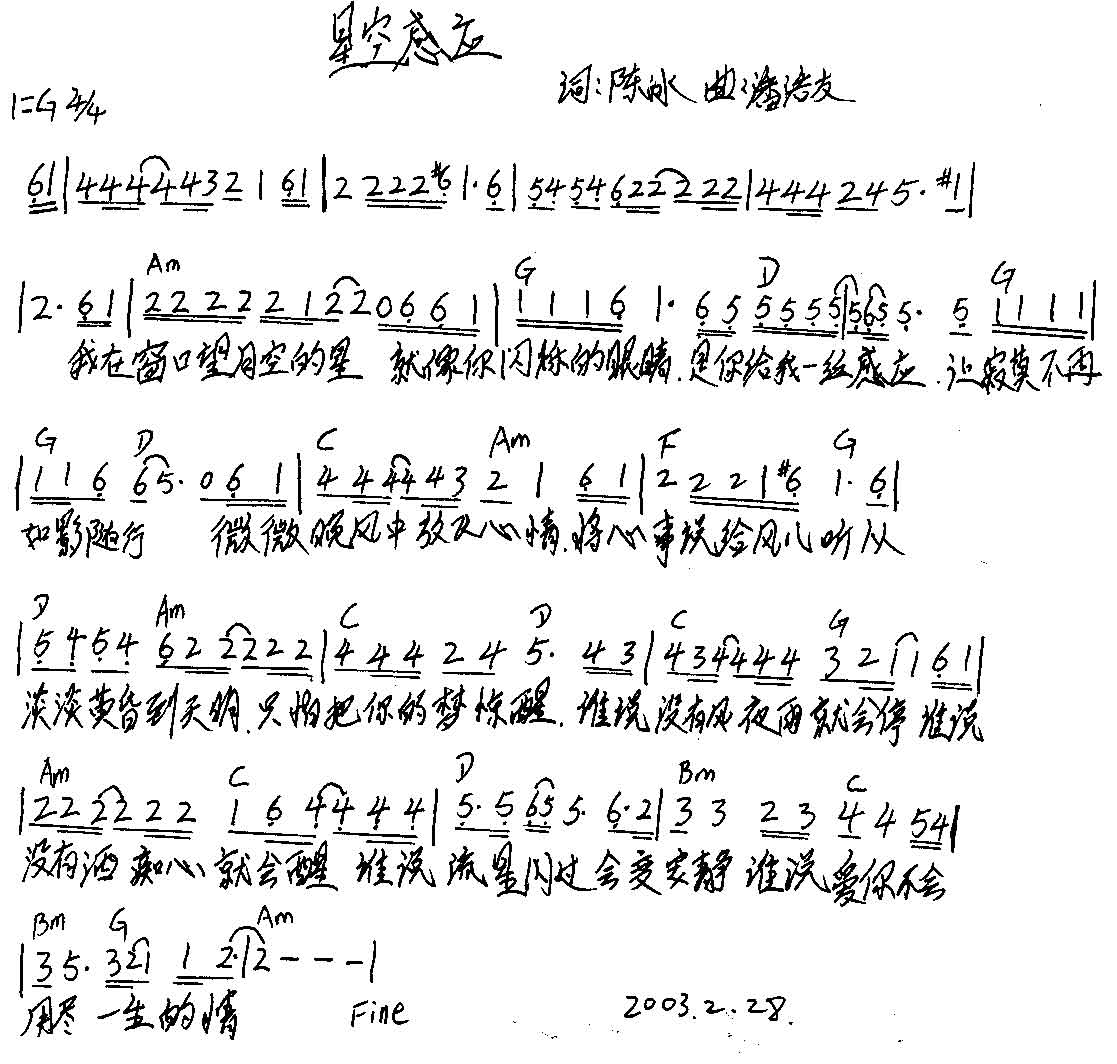 星空感应
词:陈冰 曲:潘浩友
1=G 2/4
61|4444432 1 61|2 2222#6 1·6|5454622222|444245·#1|
|2·61|22222122066 1|1116 1·655555|5655·51111|
Am G D G
我在窗口望月空的星 就像你闪烁的眼睛.是你给我一丝感应.让寂寞不再
G D C Am F G
|116 65·06 1|4444432 1 61|2 2221#6 1·6|
如影随行 微微晚风中放下心情.将心事说给风儿听从
D Am C D C G
|5454 622222|44424 5· 43|43444432 1161|
淡淡黄昏到天明.只怕把你的梦惊醒.谁说没有风夜雨就会停谁说
Am C D Bm C
|222222 164444|5·5655·6·2|33 23 4454|
没有酒痴心就会醒 谁说流星闪过会变安静 谁说爱你不会
Bm G Am
|35·321 12·|2---|
用尽一生的情 Fine 2003.2.28.